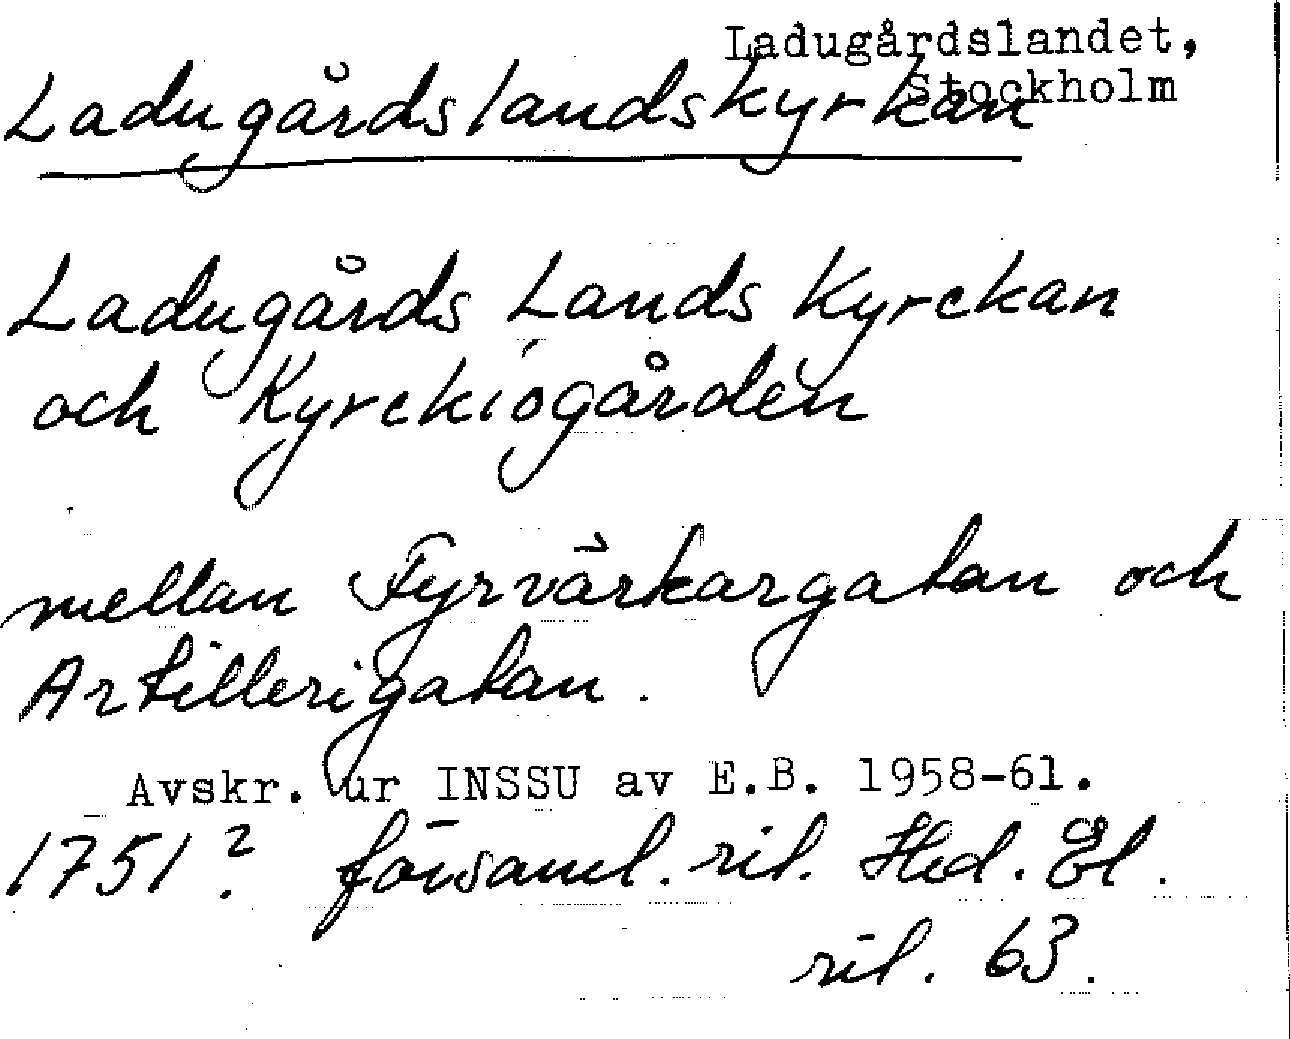 Ladugårdslandet,
Stockholm
Ladugårdslandskyrkan
Ladugårds Lands Kyrckan
och Kyrckiogården
mellan Fyrvärkargatan och
Artillerigatan.
Avskr. ur INSSU av E.B. 1958-61.
1751? församl. ril. Hed. El.
ril. 63.